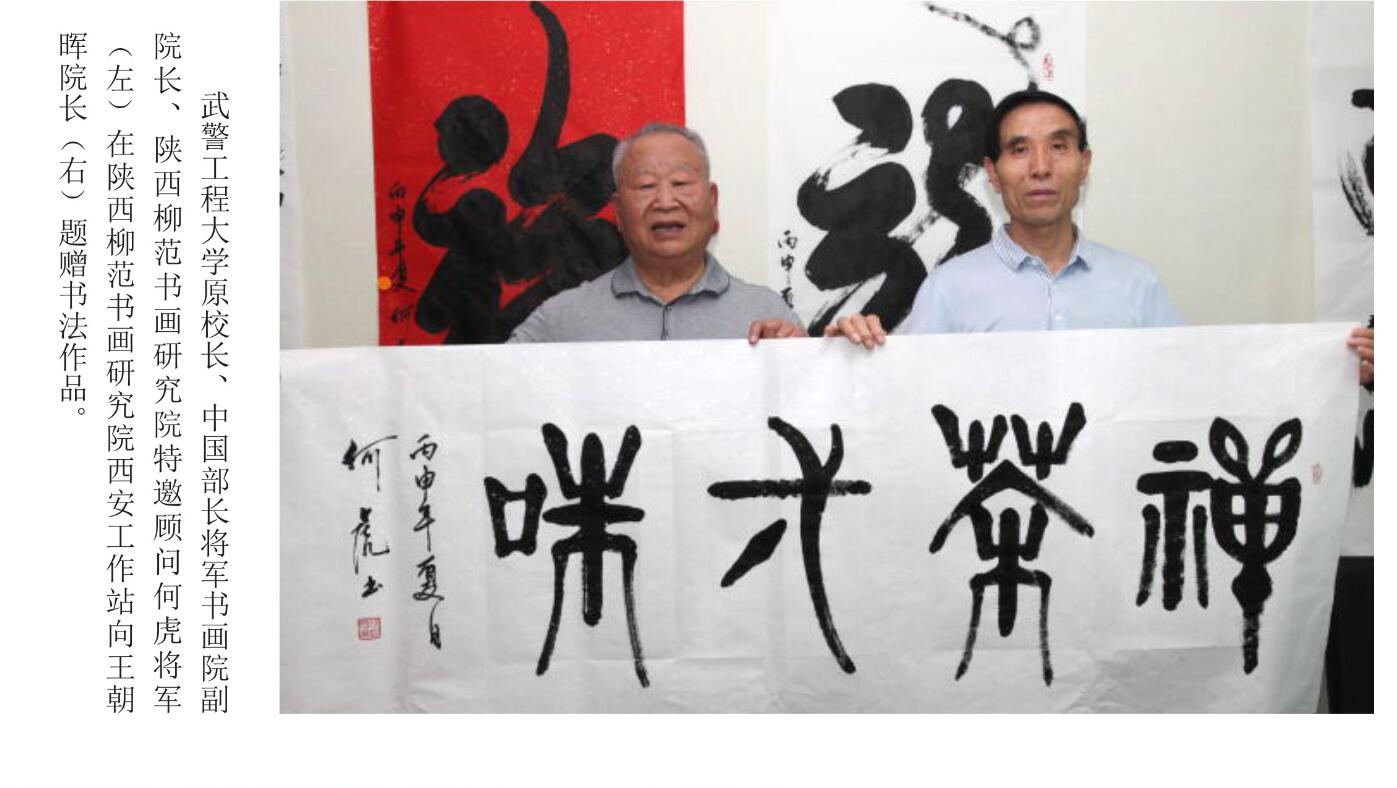 武警工程大学原校长、中国部长将军书画院副
院长、陕西柳范书画研究院特邀顾问何虎将军
（左）在陕西柳范书画研究院西安工作站向王朝
晖院长（右）题赠书法作品。
丙申年夏 何
丙申
禪茶弌味
丙申年夏日
何虎书